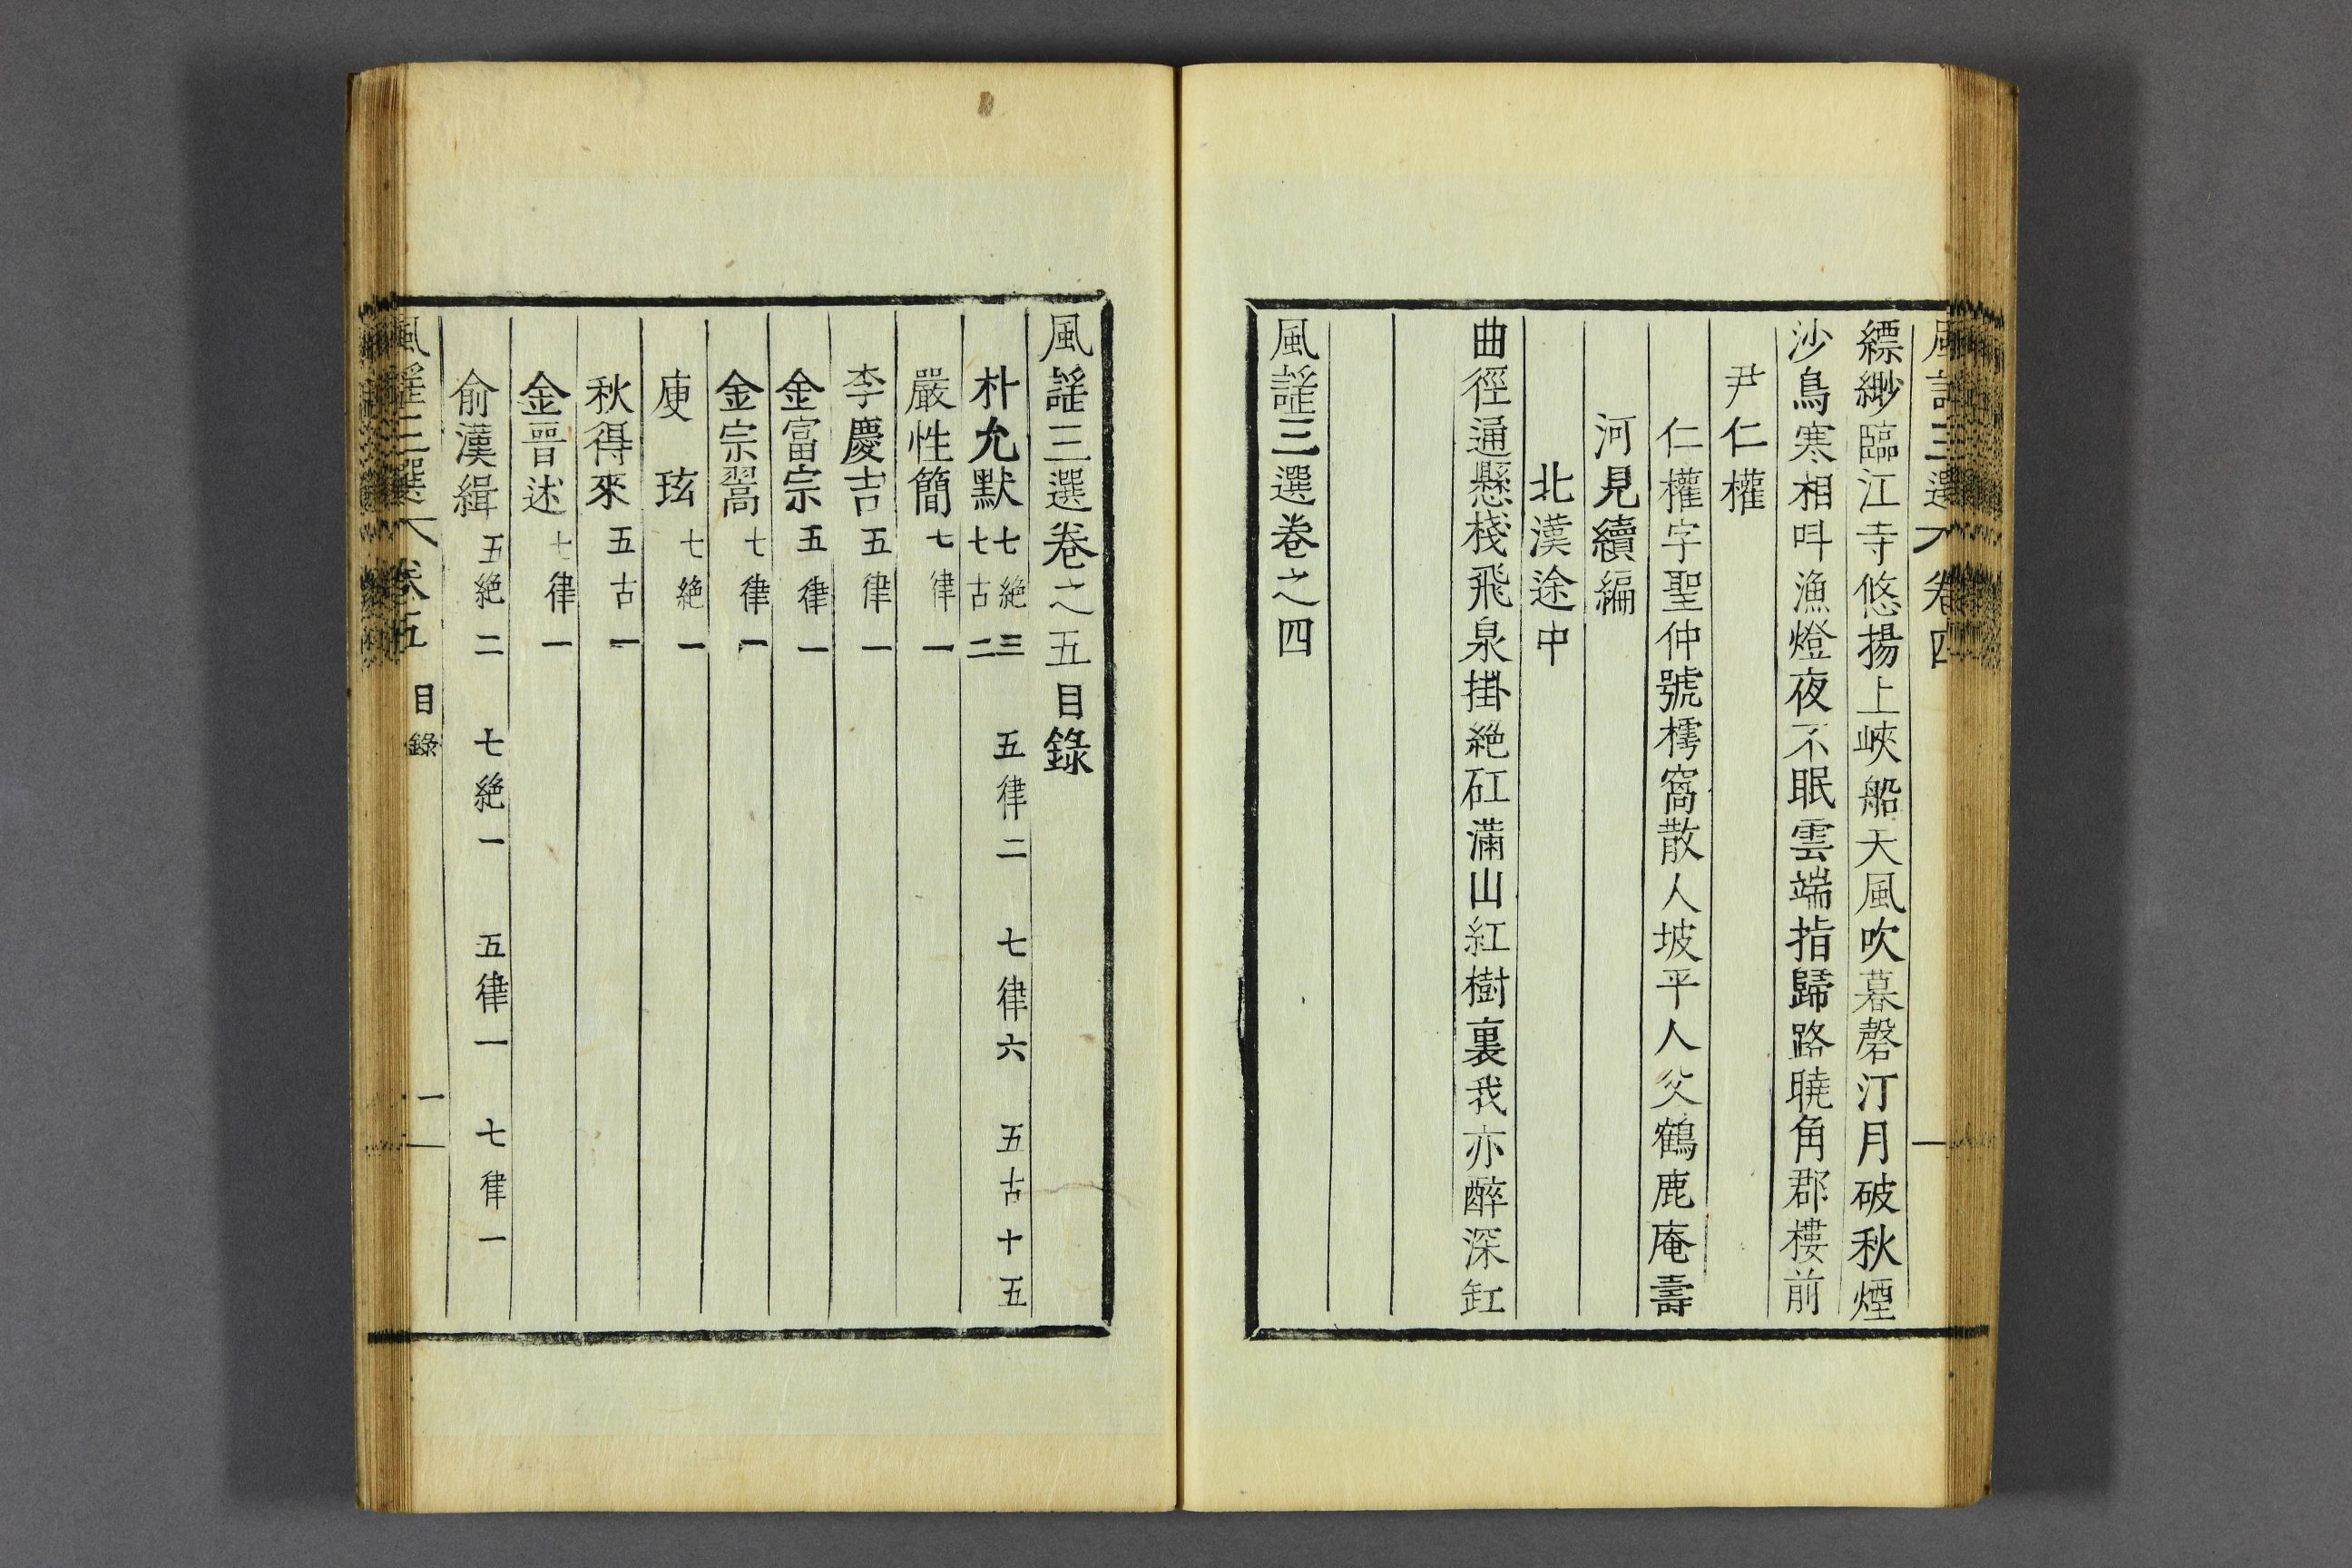 風謠三選 卷四
縹緲臨江寺悠揚上峽船天風吹暮磬汀月破秋煙
沙鳥寒相呌漁燈夜不眠雲端指歸路曉角郡樓前
尹仁權
仁權字聖仲號樗窩散人坡平人父鶴鹿庵壽
河見續編
北漢途中
曲徑通懸棧飛泉掛絶矼滿山紅樹裏我亦醉深缸
風謠三選卷之四
風謠三選卷之五目錄
朴允默 七絶三 七古二 五律二 七律六 五古十五
嚴性簡 七律一
李慶吉 五律一
金富宗 五律一
金宗翯 七律一
庾玹 七絶一
秋得來 五古一
金晉述 七律一
俞漢緝 五絶二 七絶一 五律一 七律一
風謠三選 卷五 目錄 一